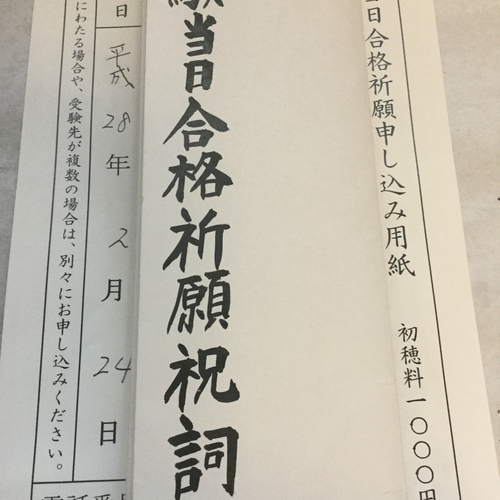 当日合格祈願申し込み用紙　初穂料一〇〇〇円
験当日合格祈願祝詞
日 平成28年2月24日
にわたる場合や、受験先が複数の場合は、別々にお申し込みください。